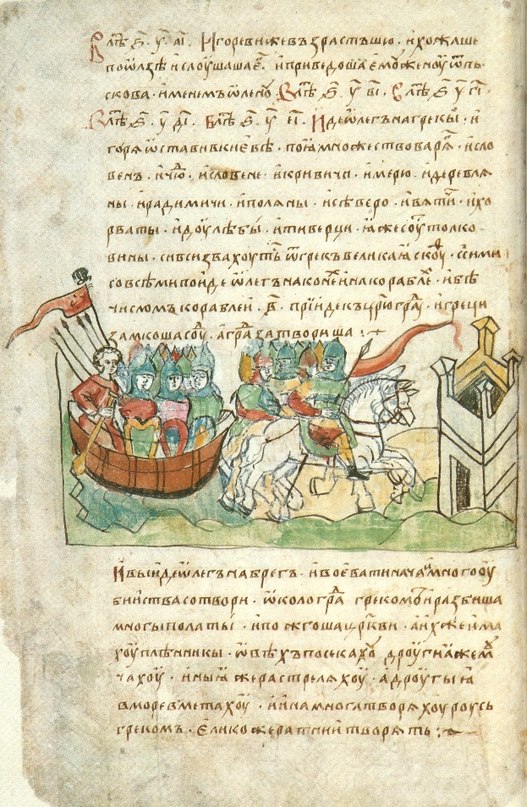 В лѣⷮ ҂ѕ҃ . у҃ . а҃і . Игореви же възрастъшю . и хожаше
по ѡлзѣ и слоушаша е҃ . и приведоша емоу женоу ѿ пь
скова . именемъ ѡленоу . В лѣⷮ ҂ѕ҃ . у҃ в҃і . В лѣⷮ ҂ѕ҃ . у҃ г҃і
В лѣⷮ ҂ѕ҃ . у҃ д҃і . В лѣⷮ ҂ѕ҃ . у҃ е҃і . Иде ѡлегъ на грекы . и
горѧ ѡстави в киевѣ . поꙗ множество варѧ . и сло
венъ . и чю . и словене . и кривичи . и мерю . и деревлѧ
ны . и радимичи . и полѧны . и северо . и вѧти . и хо
рваты . и доулѣбы . и тиверци . ꙗже соуⷮ толко
вины . си вси звахоутьⷭ ѿ грекъ великаꙗ скоу . с сими
со всѣми поиде ѡлегъ на конеⷯ и на кораблеⷯ . и бѣ
числомъ кораблеи . в҃ . прииде къ цр҃юграⷣ . и греци
замкоша соу . а граⷣ затвориша :
и выиде ѡлегъ на брегъ . и воевати нача . и много оу
бииства сотвори . ѡколо граⷣ грекомъ . и разбиша
многы полаты . и пожгоша цр҃кви . а ихже има
хоу плѣнникы . ѡвѣхъ посекахоу . дроугиꙗ же моу
чахоу . иныꙗ же растрелѧхоу . а дроугыꙗ
в море вметахоу . и ина многа творѧхоу роусь
грекомъ . елико же ратнии творѧть :